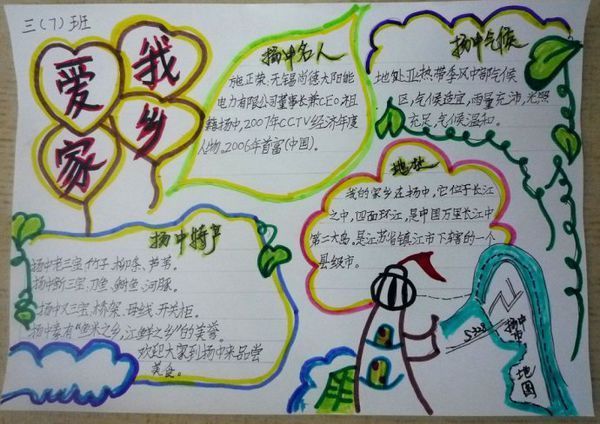 三(7)班
我
爱
乡
家
扬中名人
施正荣,无锡尚德太阳能
电力有限公司董事长兼CEO,祖
籍扬中,2007年CCTV经济年度
人物。2006年首富(中国)。
扬中气候
地处亚热带季风中部气候
区,气候适宜,雨量充沛,光照
充足,气候温和。
地址
我的家乡在扬中,它位于长江
之中,四面环江,是中国万里长江中
第二大岛。是江苏省镇江市下辖的一个
县级市。
扬中特产
扬中老三宝,竹子、柳条、芦苇。
扬中新三宝,刀鱼、鲥鱼、河豚。
扬中又三宝,桥架、母线、开关柜。
扬中素有“鱼米之乡,江鲜之乡”的美誉。
欢迎大家到扬中来品尝
美食。
S238
扬中市
地图